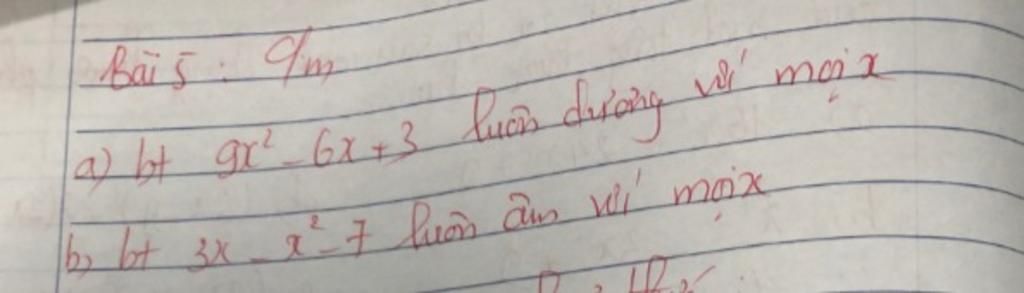 Bài 5 : C/m
a) bt 9x² - 6x + 3 luôn dương với mọi x
b, bt 3x - x² - 7 luôn âm với mọi x